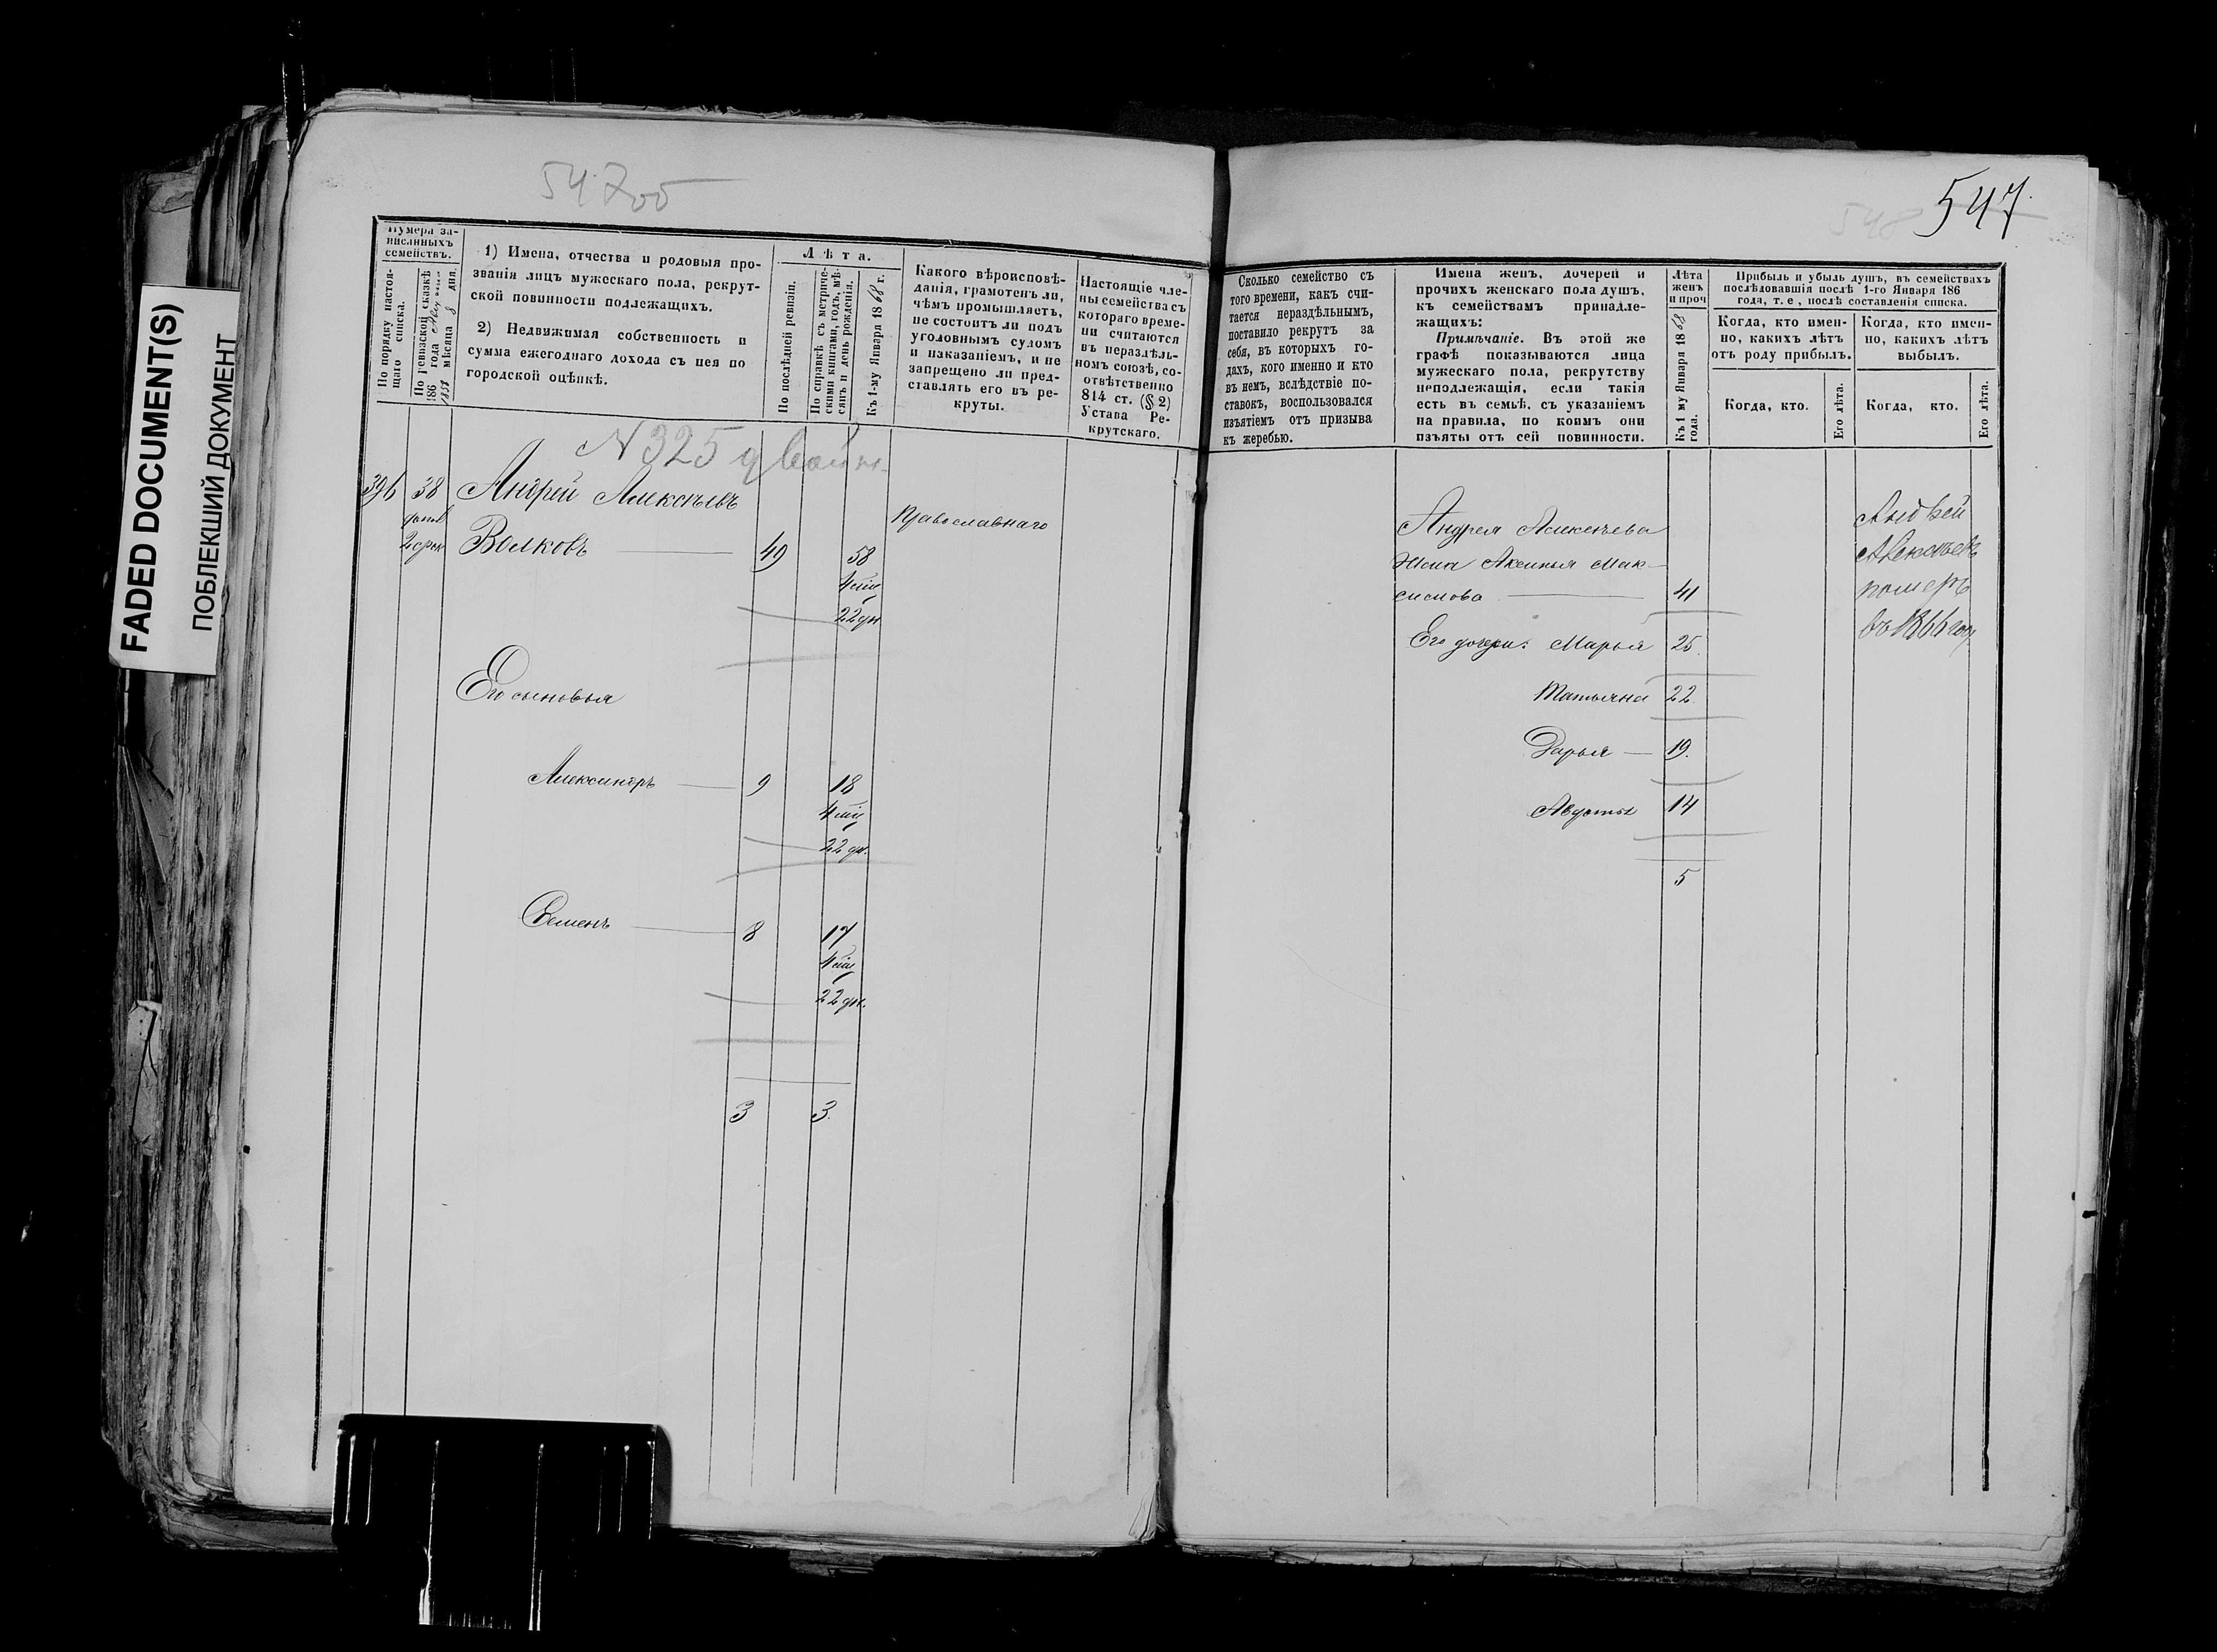 FADED DOCUMENT(S)
ПОБЛЕКШИЙ ДОКУМЕНТ
547об
Нумера за-
писанныхъ
семействъ.
По порядку настоя-
щаго списка.
По ревизской сказкѣ
186 года
1858 мѣсяца 8 дня.
1) Имена, отчества и родовыя про-
званія лицъ мужескаго пола, рекрут-
ской повинности подлежащихъ.
2) Недвижимая собственность и
сумма ежегоднаго дохода съ нея по
городской оцѣнкѣ.
Лѣта.
По послѣдней ревизіи.
По справкѣ съ метриче-
скими книгами, годъ, мѣ-
сяцъ и день рожденія.
Къ 1-му Января 1868 г.
Какого вѣроисповѣ-
данія, грамотенъ ли,
чѣмъ промышляетъ,
не состоитъ ли подъ
уголовнымъ судомъ
и наказаніемъ, и не
запрещено ли пред-
ставлять его въ ре-
круты.
Настоящіе чле-
ны семейства съ
котораго време-
ни считаются
въ нераздѣль-
номъ союзѣ, со-
отвѣтственно
814 ст. (§ 2)
Устава Ре-
крутскаго.
N 325
396 38 Андрей Алексѣевъ
Волковъ 49 58
Православнаго
4 мѣ
22 дн
Его сыновья
Александръ 9 18
4 мѣ
22 дн.
Семенъ 8 17
4 мѣ
22 дн.
3 3.
548 547.
Сколько семейство съ
того времени, какъ счи-
тается нераздѣльнымъ,
поставило рекрутъ за
себя, въ которыхъ го-
дахъ, кого именно и кто
въ немъ, вслѣдствіе по-
ставокъ, воспользовался
изъятіемъ отъ призыва
къ жеребью.
Имена женъ, дочерей и
прочихъ женскаго пола душъ,
къ семействамъ принадле-
жащихъ:
Примѣчаніе. Въ этой же
графѣ показываются лица
мужескаго пола, рекрутству
неподлежащія, если такія
есть въ семьѣ, съ указаніемъ
на правила, по коимъ они
изъяты отъ сей повинности.
Лѣта
женъ
и проч
Къ 1 му Января 1868
года.
Прибыль и убыль душъ, въ семействахъ
послѣдовавшія послѣ 1-го Января 186
года, т. е, послѣ составленія списка.
Когда, кто имен-
но, какихъ лѣтъ
отъ роду прибылъ.
Когда, кто имен-
но, какихъ лѣтъ
выбылъ.
Когда, кто.
Его лѣта.
Когда, кто.
Его лѣта.
Андрея Алексѣева
жена Аксинья Мак-
симова 41
Его дочери: Марья 25.
Татьяна 22.
Дарья 19.
Августа 14
5
Андрей
Алексѣевъ
померъ
въ 1866 году